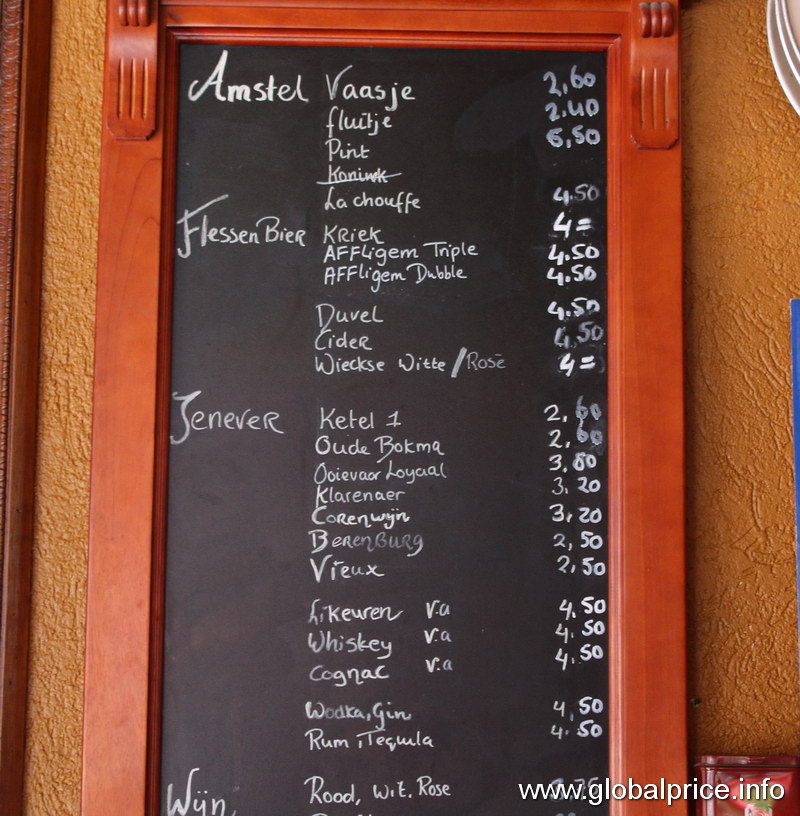 Amstel Vaasje 2,60
fluitje 2.40
Pint 5,50
Konink
La chouffe 4.50
Flessen Bier KRiek 4=
AFFligem Triple 4.50
AFFligem Dubble 4.50
Duvel 4.50
Cider 4,50
Wieckse Witte / Rosé 4=
Jenever Ketel 1 2,60
Oude Bokma 2,60
Ooievaar Loyaal 3.80
Klarenaer 3.20
Corenwijn 3,20
BerenBurg 2,50
Vieux 2,50
Likeuren v.a 4.50
Whiskey v.a 4.50
Cognac v.a 4.50
Wodka, Gin 4,50
Rum, Tequila 4.50
Wijn, Rood, wit, Rose
www.globalprice.info